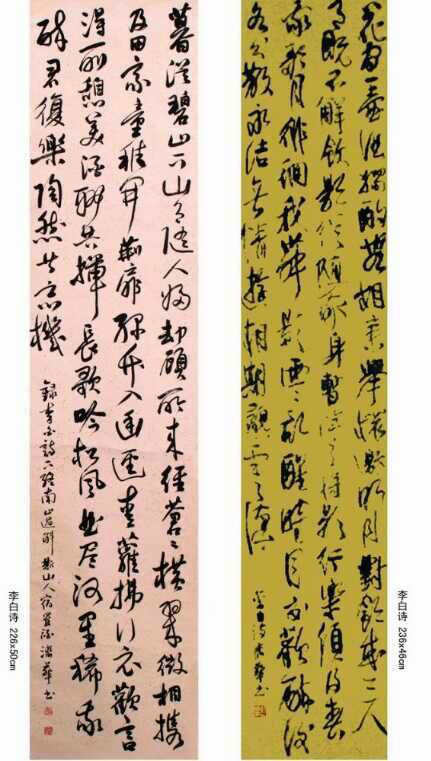 花間一壺酒獨酌無相親舉杯邀明月對影成三人
月既不解飲影徒隨我身暫伴月將影行樂須及春
我歌月徘徊我舞影凌亂醒時同交歡醉後
各分散永結無情遊相期邈雲漢
李白詩 華書
李白诗 236x46cm
暮從碧山下山月隨人歸却顧所來徑蒼々橫翠微相携
及田家童稚開荊扉綠竹入幽徑青蘿拂行衣歡言
得所憩美酒聊共揮長歌吟松風曲盡河星稀我
醉君復樂陶然共忘機
錄李白詩下終南山過斛斯山人宿置酒 華書
李白诗 226x50cm